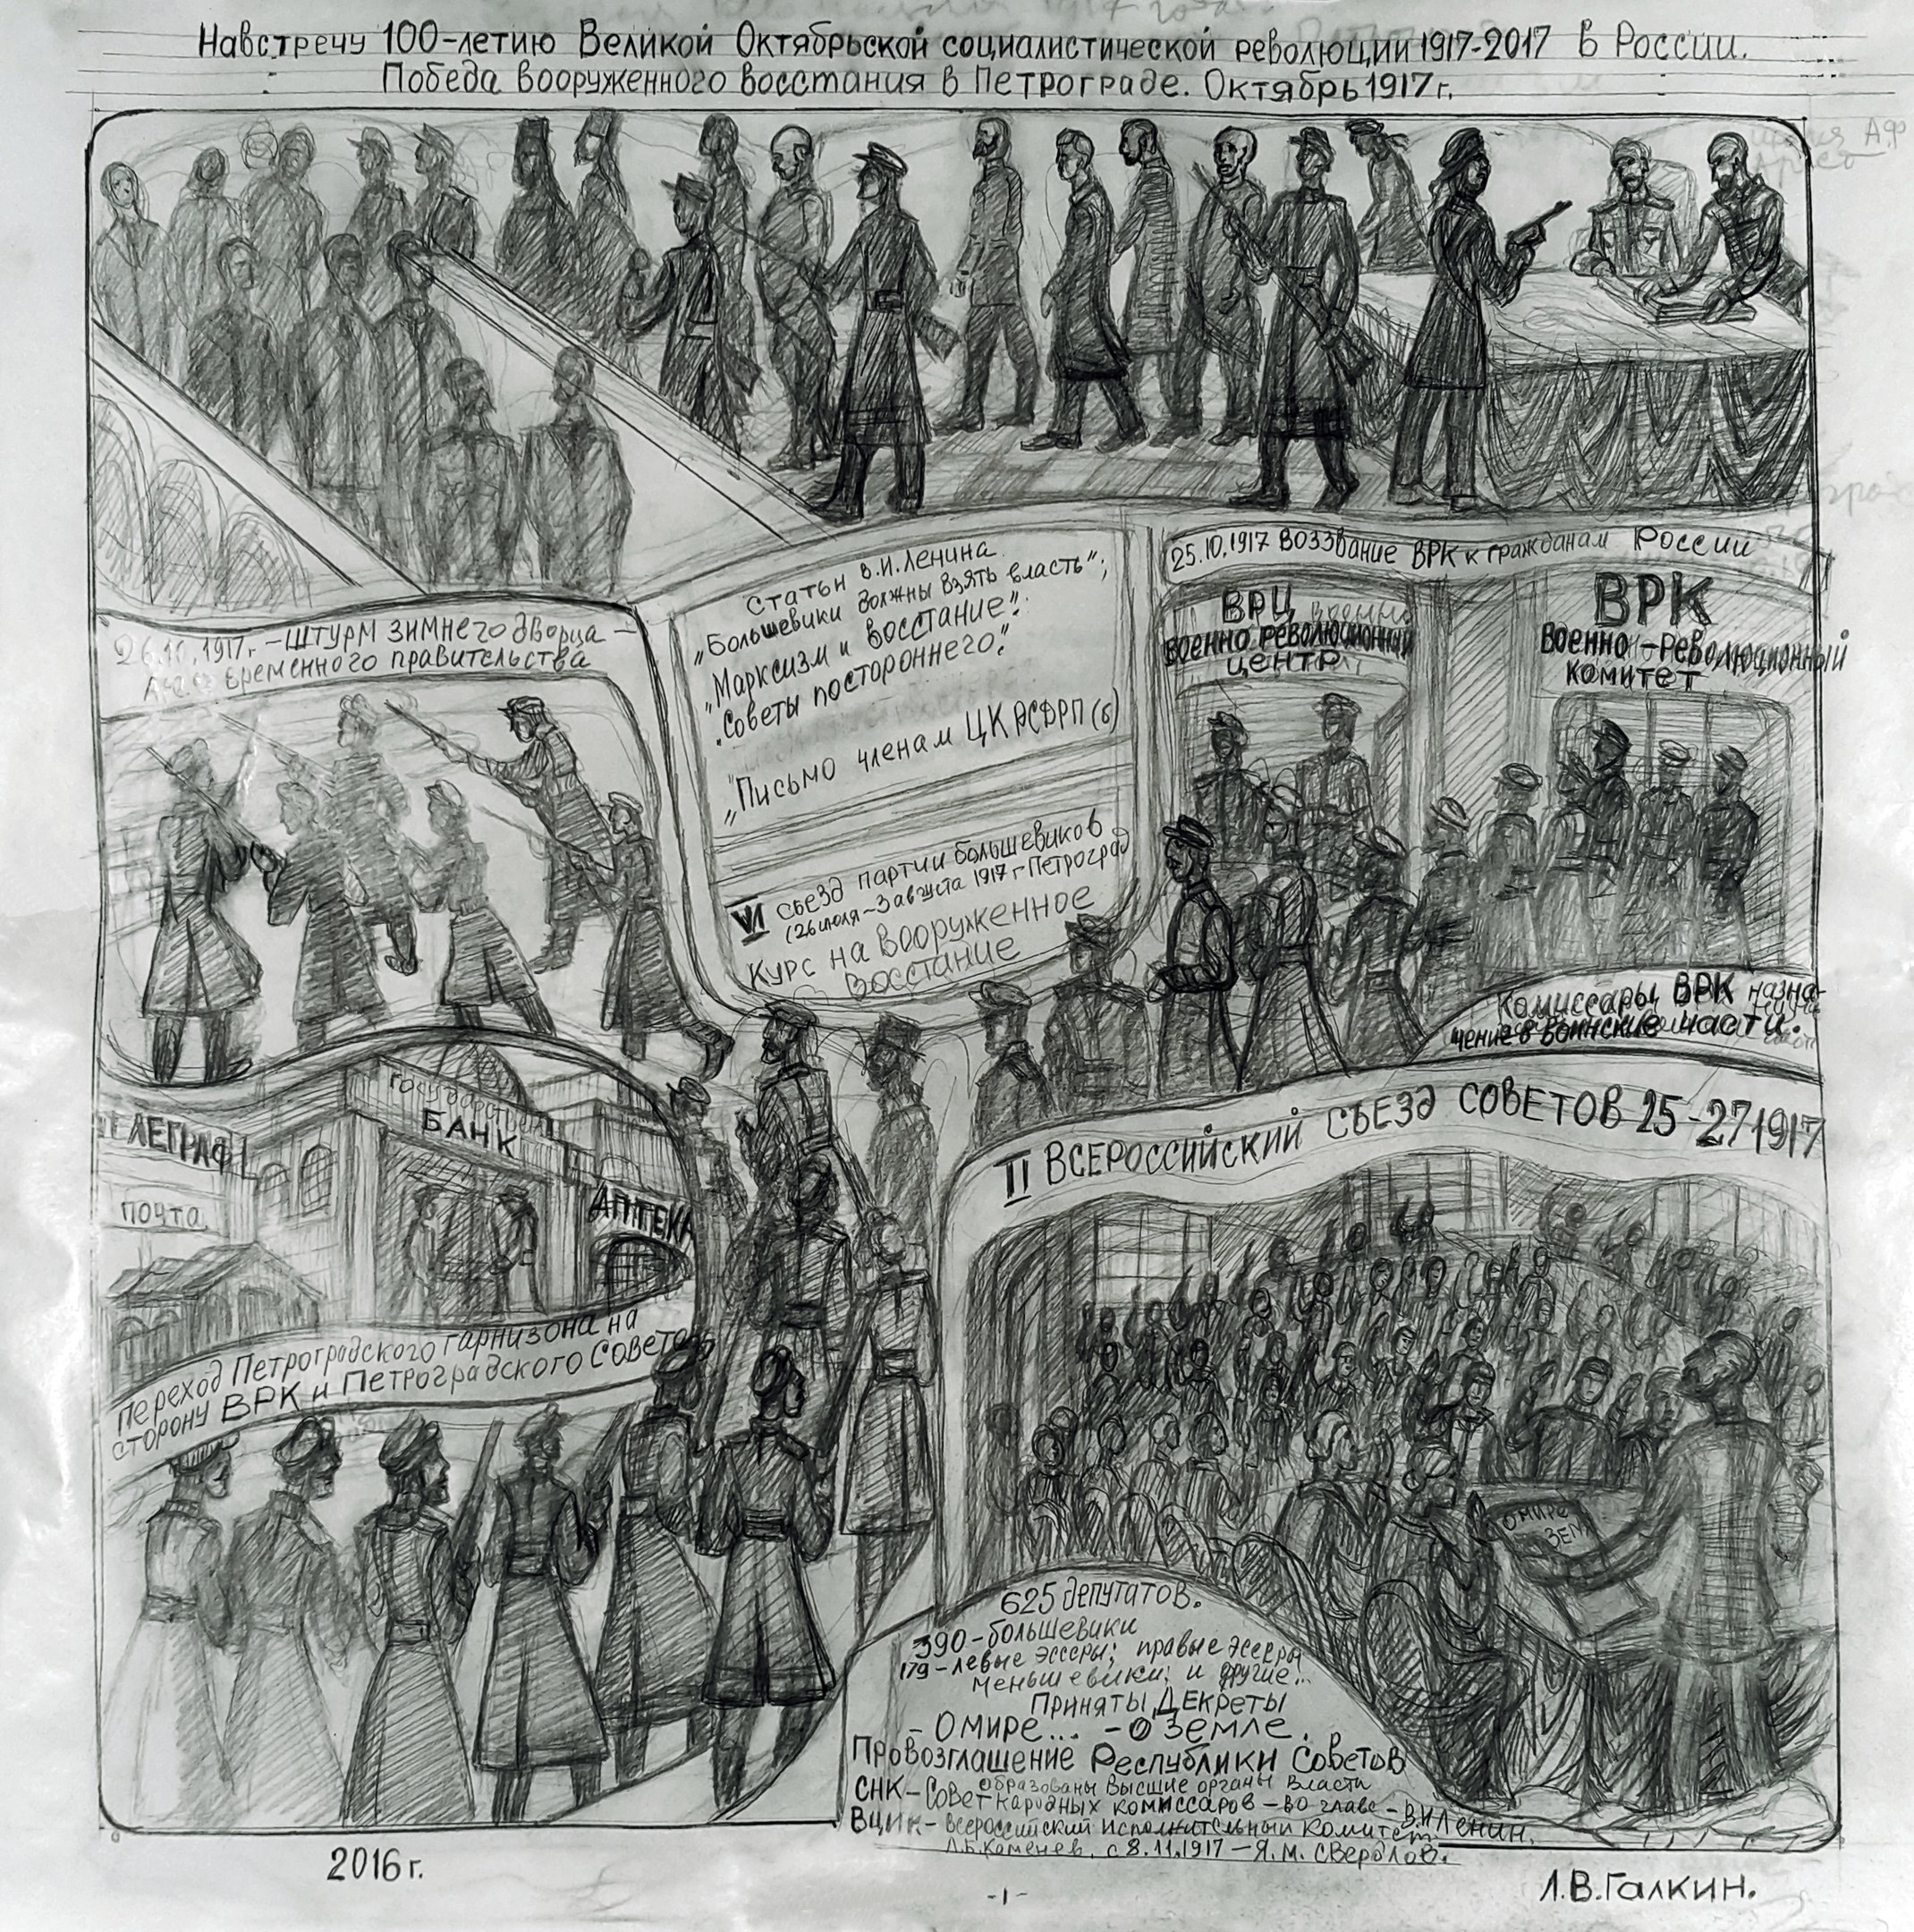 Навстречу 100-летию Великой Октябрьской социалистической революции 1917-2017 в России.
Победа вооруженного восстания в Петрограде. Октябрь 1917 г.
Статьи В.И. Ленина
„Большевики должны взять власть";
„Марксизм и восстание".
„Советы постороннего".
„Письмо членам ЦК РСДРП(б)
VI съезд партии большевиков
(26 июля-3 августа 1917 г Петроград
Курс на вооруженное
восстание
25.10.1917 Воззвание ВРК к гражданам России
ВРЦ
Военно революционный
центр
ВРК
Военно-революционный
комитет
Комиссары ВРК назна-
чение в воинские части.
26.10.1917г.-Штурм Зимнего дворца-
временного правительства
ТЕЛЕГРАФ
ПОЧТА
Государствен
БАНК
АПТЕКА
Переход Петроградского гарнизона на
сторону ВРК и Петроградского Совета
II ВСЕРОССИЙСКИЙ СЪЕЗД СОВЕТОВ 25-27 1917
О мире
зем
625 депутатов.
390-большевики
179-левые эссеры; правые эсеры
меньшевики; и другие...
Приняты Декреты
- О мире... - о земле.
Провозглашение Республики Советов
образованы Высшие органы власти
СНК-Совет народных комиссаров-во главе-В.И Ленин.
ВЦИК-Всероссийский Исполнительный Комитет
Л.Б.Каменев, с 8.11.1917-Я.М. Свердлов.
2016 г.
-1-
Л.В.Галкин.